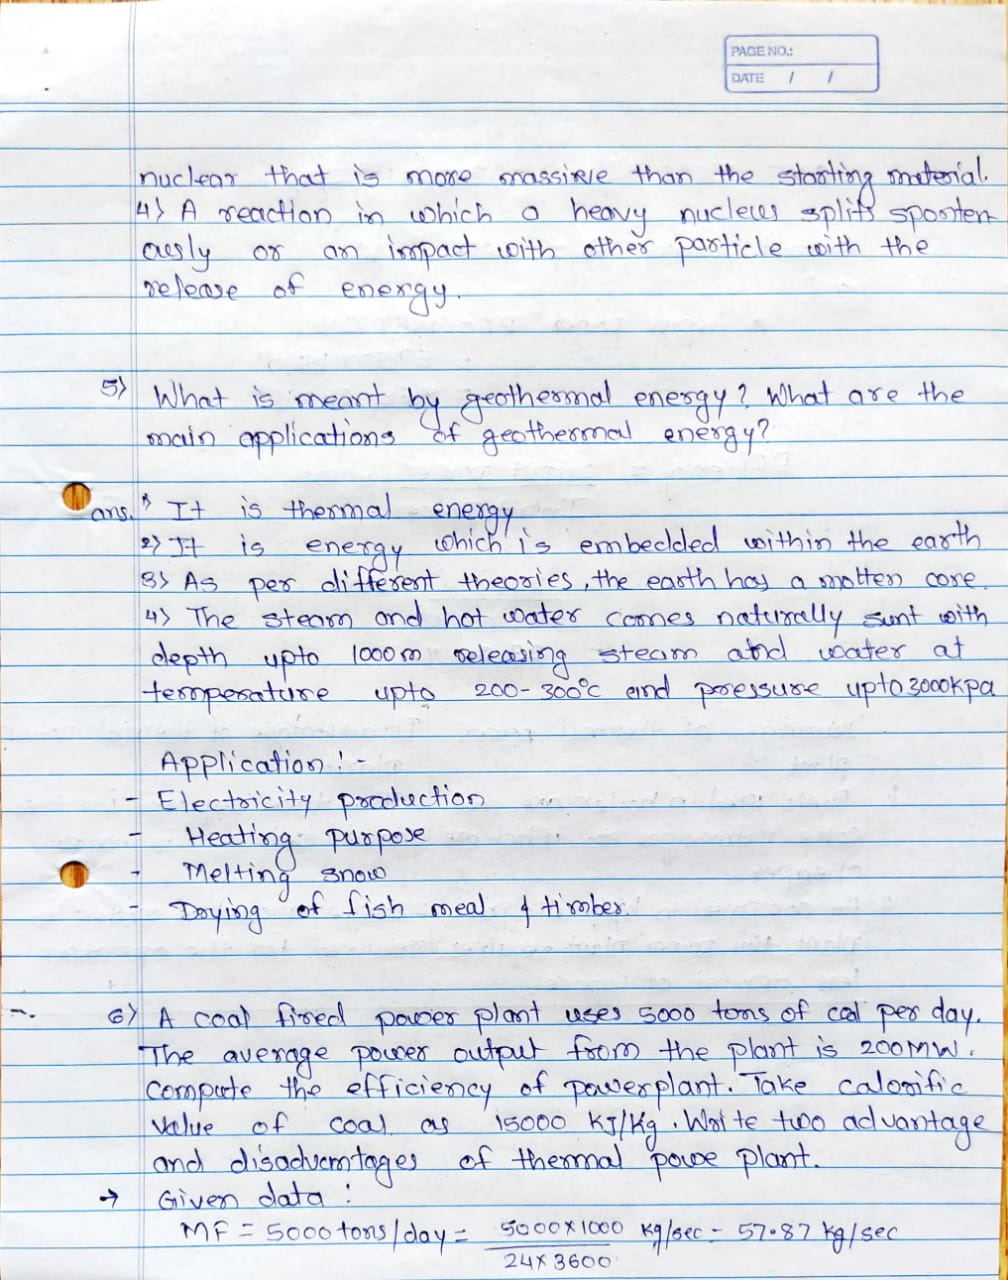 PAGE NO.:
DATE / /
nuclear that is more massive than the starting material.
4) A reaction in which a heavy nucleus splits sponten
ously or an impact with other particle with the
release of energy.
5) What is meant by geothermal energy? What are the
main applications of geothermal energy?
ans. 1) It is thermal energy
2) It is energy which is embedded within the earth
3) As per different theories, the earth has a molten core.
4) The steam and hot water comes naturally sunt with
depth upto 1000m releasing steam and water at
temperature upto 200-300°c and pressure upto 3000kpa
Application :-
- Electricity production
- Heating purpose
- Melting snow
- Drying of fish meal & timber.
6) A coal fired power plant uses 5000 tons of coal per day.
The average power output from the plant is 200MW.
compute the efficiency of powerplant. Take calorific
value of coal as 15000 KJ/Kg. Write two advantage
and disadvantages of thermal powe plant.
→ Given data :
MF = 5000 tons/day = 5000×1000 / 24×3600 kg/sec = 57.87 kg/sec